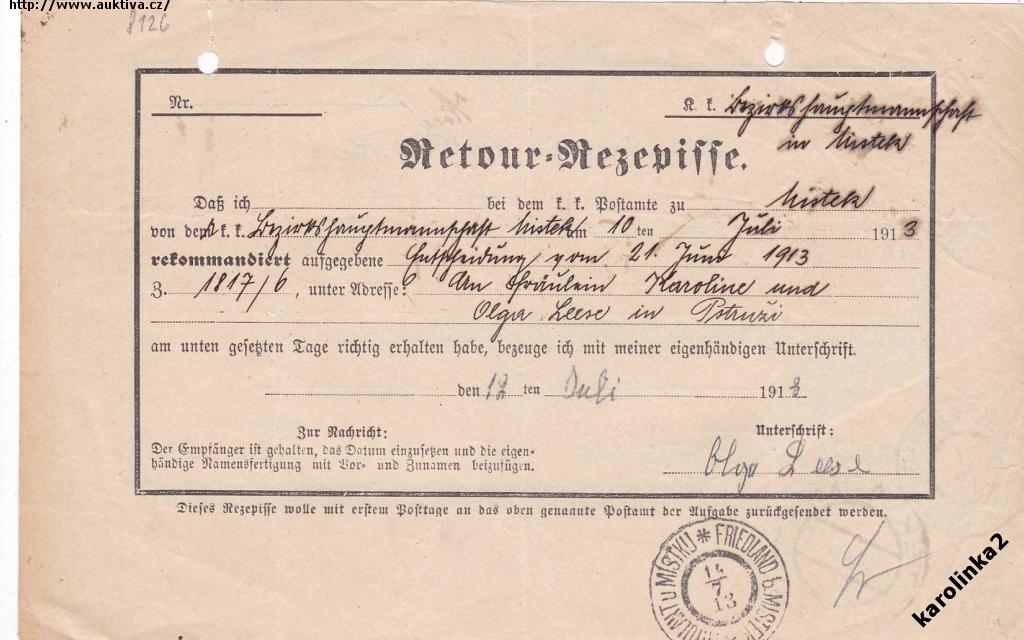 http://www.auktiva.cz/
8126
Nr.
K. k. Bezirkshauptmannschaft
in Mistek
Retour-Rezepisse.
Daß ich bei dem k. k. Postamte zu Mistek
von der k. k. Bezirkshauptmannschaft Mistek am 10 ten Juli 1913
rekommandiert aufgegebene Entscheidung vom 21. Juni 1913
Z. 1817/6, unter Adresse: An Fräulein Karoline und
Olga Leese in Pstruži
am unten gesetzten Tage richtig erhalten habe, bezeuge ich mit meiner eigenhändigen Unterschrift.
den 12 ten Juli 1913
Zur Nachricht:
Der Empfänger ist gehalten, das Datum einzusetzen und die eigen-
händige Namensfertigung mit Vor- und Zunamen beizufügen.
Unterschrift:
Olga Leese
Dieses Rezepisse wolle mit erstem Posttage an das oben genannte Postamt der Aufgabe zurückgesendet werden.
FRIEDLAND b. MISTEK
FRÝDLANT U MÍSTKU
14
7
13
karolinka2